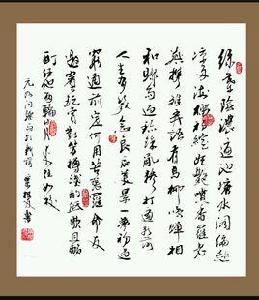 绿叶阴浓遍池塘水阁偏趁
凉多海榴初绽妖艳喷香罗老
燕携雏弄语有高柳鸣蝉相
和骤雨过珍珠乱糁打遍新荷
人生有几念良辰美景一梦初过
穷通前定何用苦张罗命友
邀宾玩赏对芳樽浅酌低歌且酩
酊任他两轮日月来往如梭
元好问骤雨打新荷